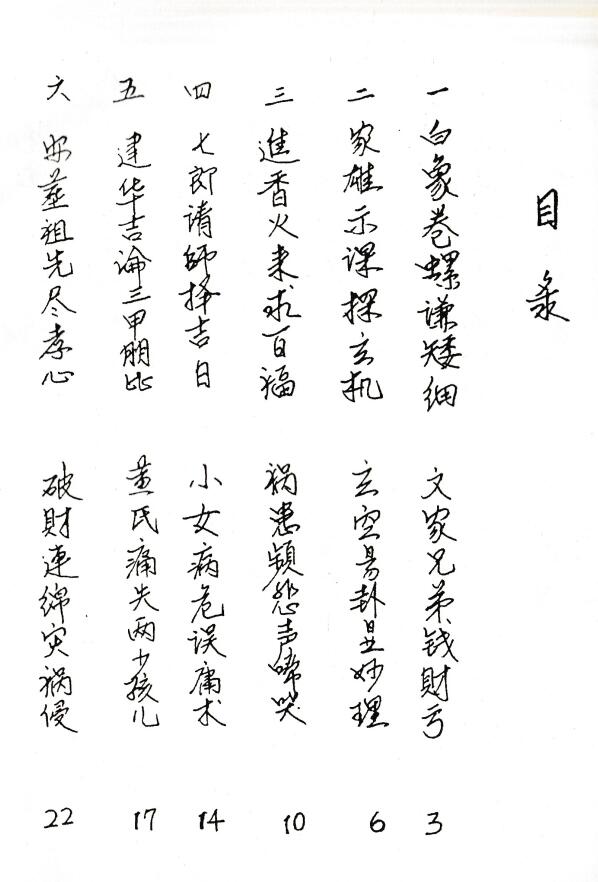 目录
一 白象卷螺谦矮细 文家兄弟钱财亏 3
二 家雄示课探玄机 玄空易卦显妙理 6
三 進香火来求百福 祸患频悲声啼哭 10
四 七郎请師择吉日 小女病危误庸术 14
五 建华吉論三甲朋比 黄氏痛失两少孩儿 17
六 安葬祖先尽孝心 破财連绵灾祸侵 22